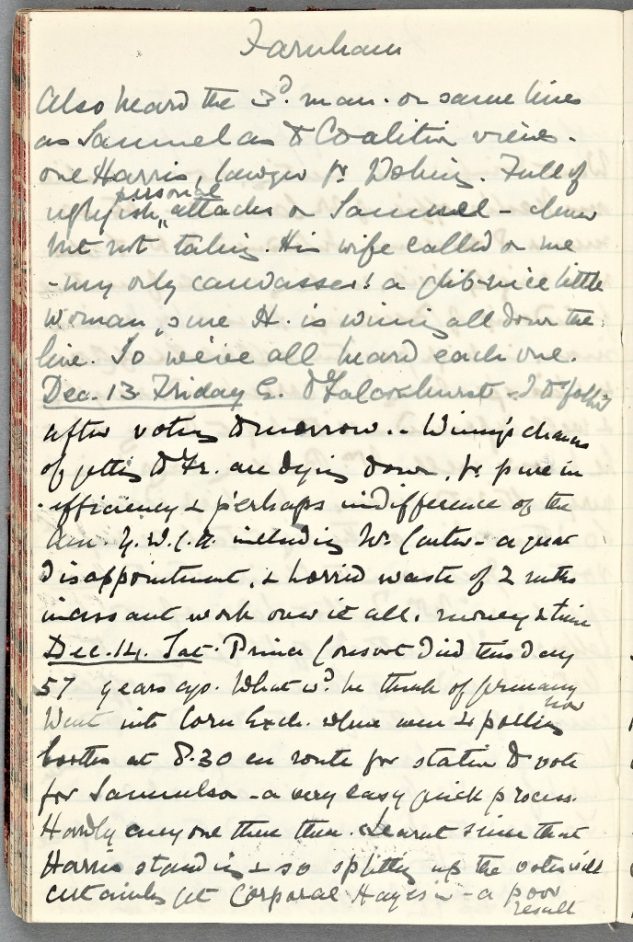 Farnham
Also heard the 3d. man. on same lines
as Samuel as to Coalition views -
one Harris, lawyer fr. Woking. Full of
personal
attacks on Samuel - clever
but not taking. His wife called on me
- my only canvasser! a glib nice little
woman, sure H. is winning all down the
line. So we've all heard each one.
Dec. 13 Friday E. to - I to follow
after voting tomorrow. - Winny's chances
of getting to Fr. are dying down, fr. pure in
-efficiency & perhaps indifference of the
Am. Y.W.C.A. including Mr. Carter - a great
disappointment, & horrid waste of 2 mths
incessant work over it all, money & time
Dec. 14. Sat. Prince Consort died this day
57 years ago. What wd. he think of Germany
now
Went into Corn Exch. where were 4 polling
booths at 8.30 en route for station to vote
for Samuelson - a very easy quick process.
Hardly anyone there then. Learnt since that
Harris standing & so splitting up the votes will
certainly get Corporal Hayes in - a poor
result